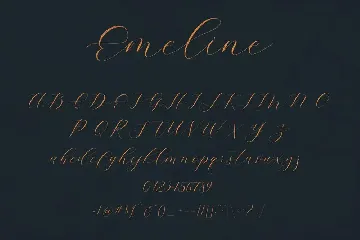 Emeline
A B C D E F G H I J K L M N O
P Q R S T U V W X Y Z
abcdefghijklmnopqrstuvwxyz
0123456789